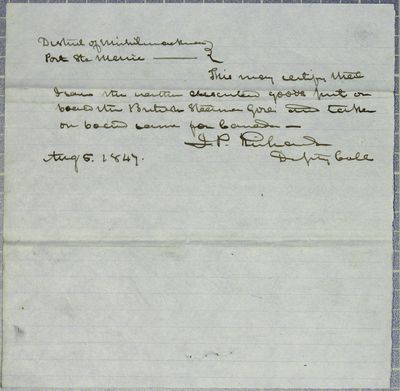 District of Michilimackinac
Port Ste Marie
This may certify that
I saw the within described goods put on
board the British Steamer Gore and taken
on board same for Canada —
J. P. Richards
Aug 5. 1847. Depty Coll